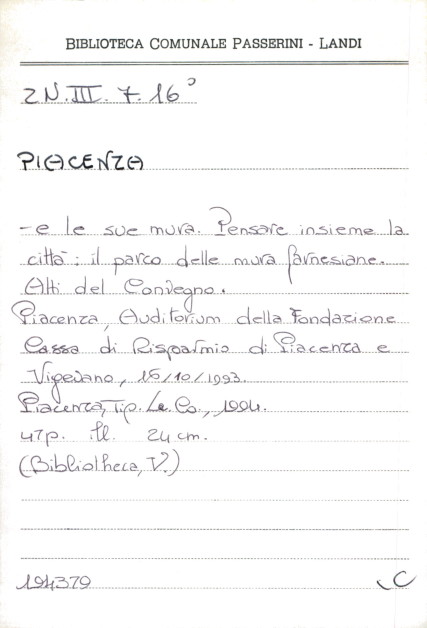 BIBLIOTECA COMUNALE PASSERINI - LANDI
2N.III.7.16°
PIACENZA
- e le sue mura. Pensare insieme la
città: il parco delle mura farnesiane.
Atti del Convegno.
Piacenza, Auditorium della Fondazione
Cassa di Risparmio di Piacenza e
Vigevano, 15/10/1993.
Piacenza, Tip. Le. Co., 1994.
47p. ill. 24 cm.
(Bibliotheca, V.)
194379
C